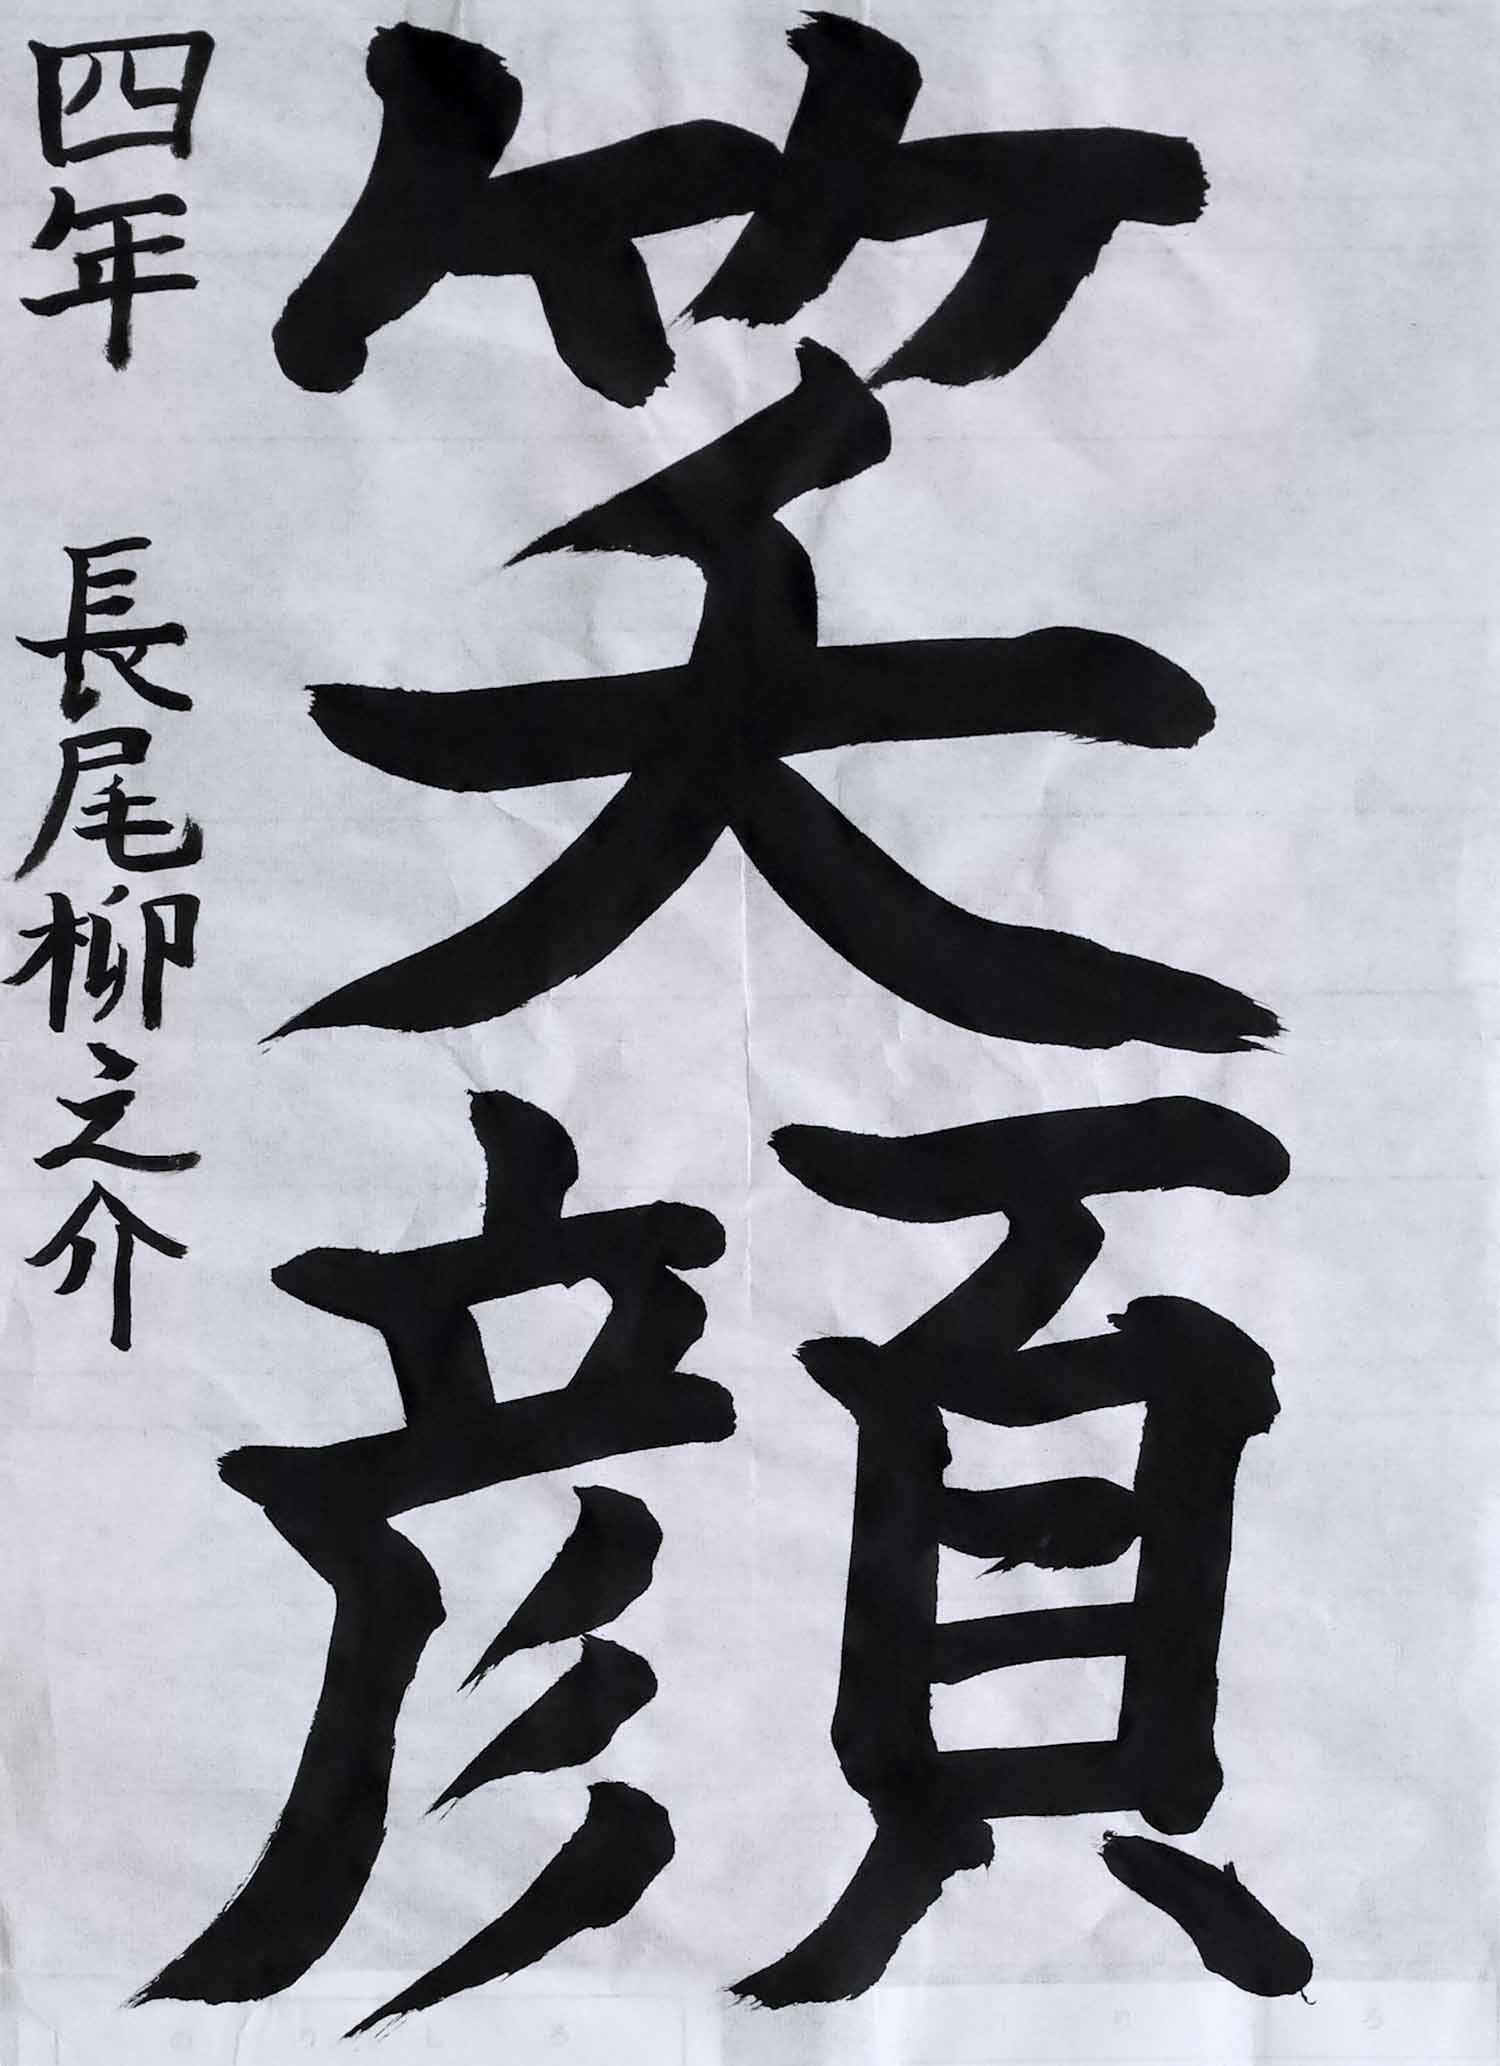 笑顔
四年 長尾柳之介